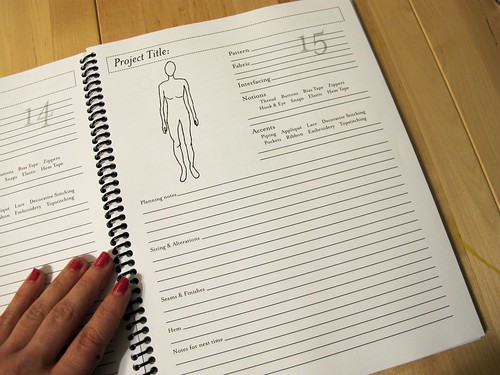 14
Bias Tape Zippers
Snaps Elastic Hem Tape
Lace Decorative Stitching
Embroidery Topstitching
Project Title:
15
Pattern
Fabric
Interfacing
Notions
Thread Buttons Bias Tape Zippers
Hook & Eye Snaps Elastic Hem Tape
Accents
Piping Appliqué Lace Decorative Stitching
Pockets Ribbon Embroidery Topstitching
Planning notes
Sizing & Alterations
Seams & Finishes
Hem
Notes for next time